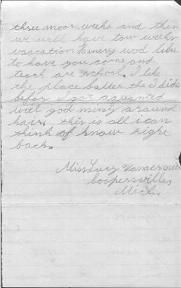 three moor weeks and then
we will have tow weeks
vacation Emery wod like
to have you come and
teach are school. I like
the place better then I did
befor I got aquanted
with god miny around
hair. this is all i can
think of know right
back.
Miss Lucy
Coopersville,
Mich.